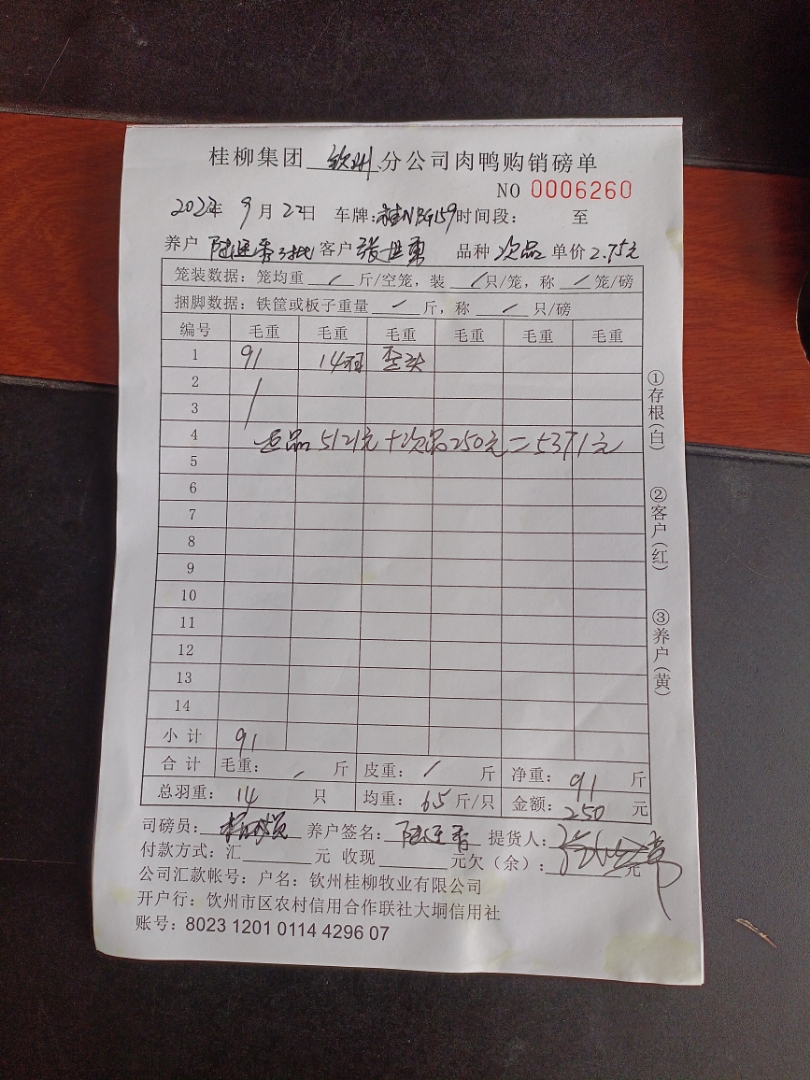 桂柳集团 钦州 分公司肉鸭购销磅单
NO 0006260
2022年 9月22日 车牌:桂N 159 时间段: 至
养户 客户 张世勇 品种 次品 单价 2.75元
笼装数据:笼均重 / 斤/空笼,装 / 只/笼,称 / 笼/磅
捆脚数据:铁筐或板子重量 / 斤,称 / 只/磅
编号 毛重 毛重 毛重 毛重 毛重 毛重
1 91 14羽 歪头
2
3
4 正品 5121元+次品250元=5371元
5
6
7
8
9
10
11
12
13
14
小计 91
合计 毛重: / 斤 皮重: / 斤 净重: 91 斤
总羽重: 14 只 均重: 6.5 斤/只 金额: 250 元
司磅员: 养户签名: 提货人:
付款方式:汇 元 收现 元欠(余): 元
公司汇款帐号:户名:钦州桂柳牧业有限公司
开户行:钦州市区农村信用合作联社大垌信用社
账号:8023 1201 0114 4296 07
①存根(白)
②客户(红)
③养户(黄)